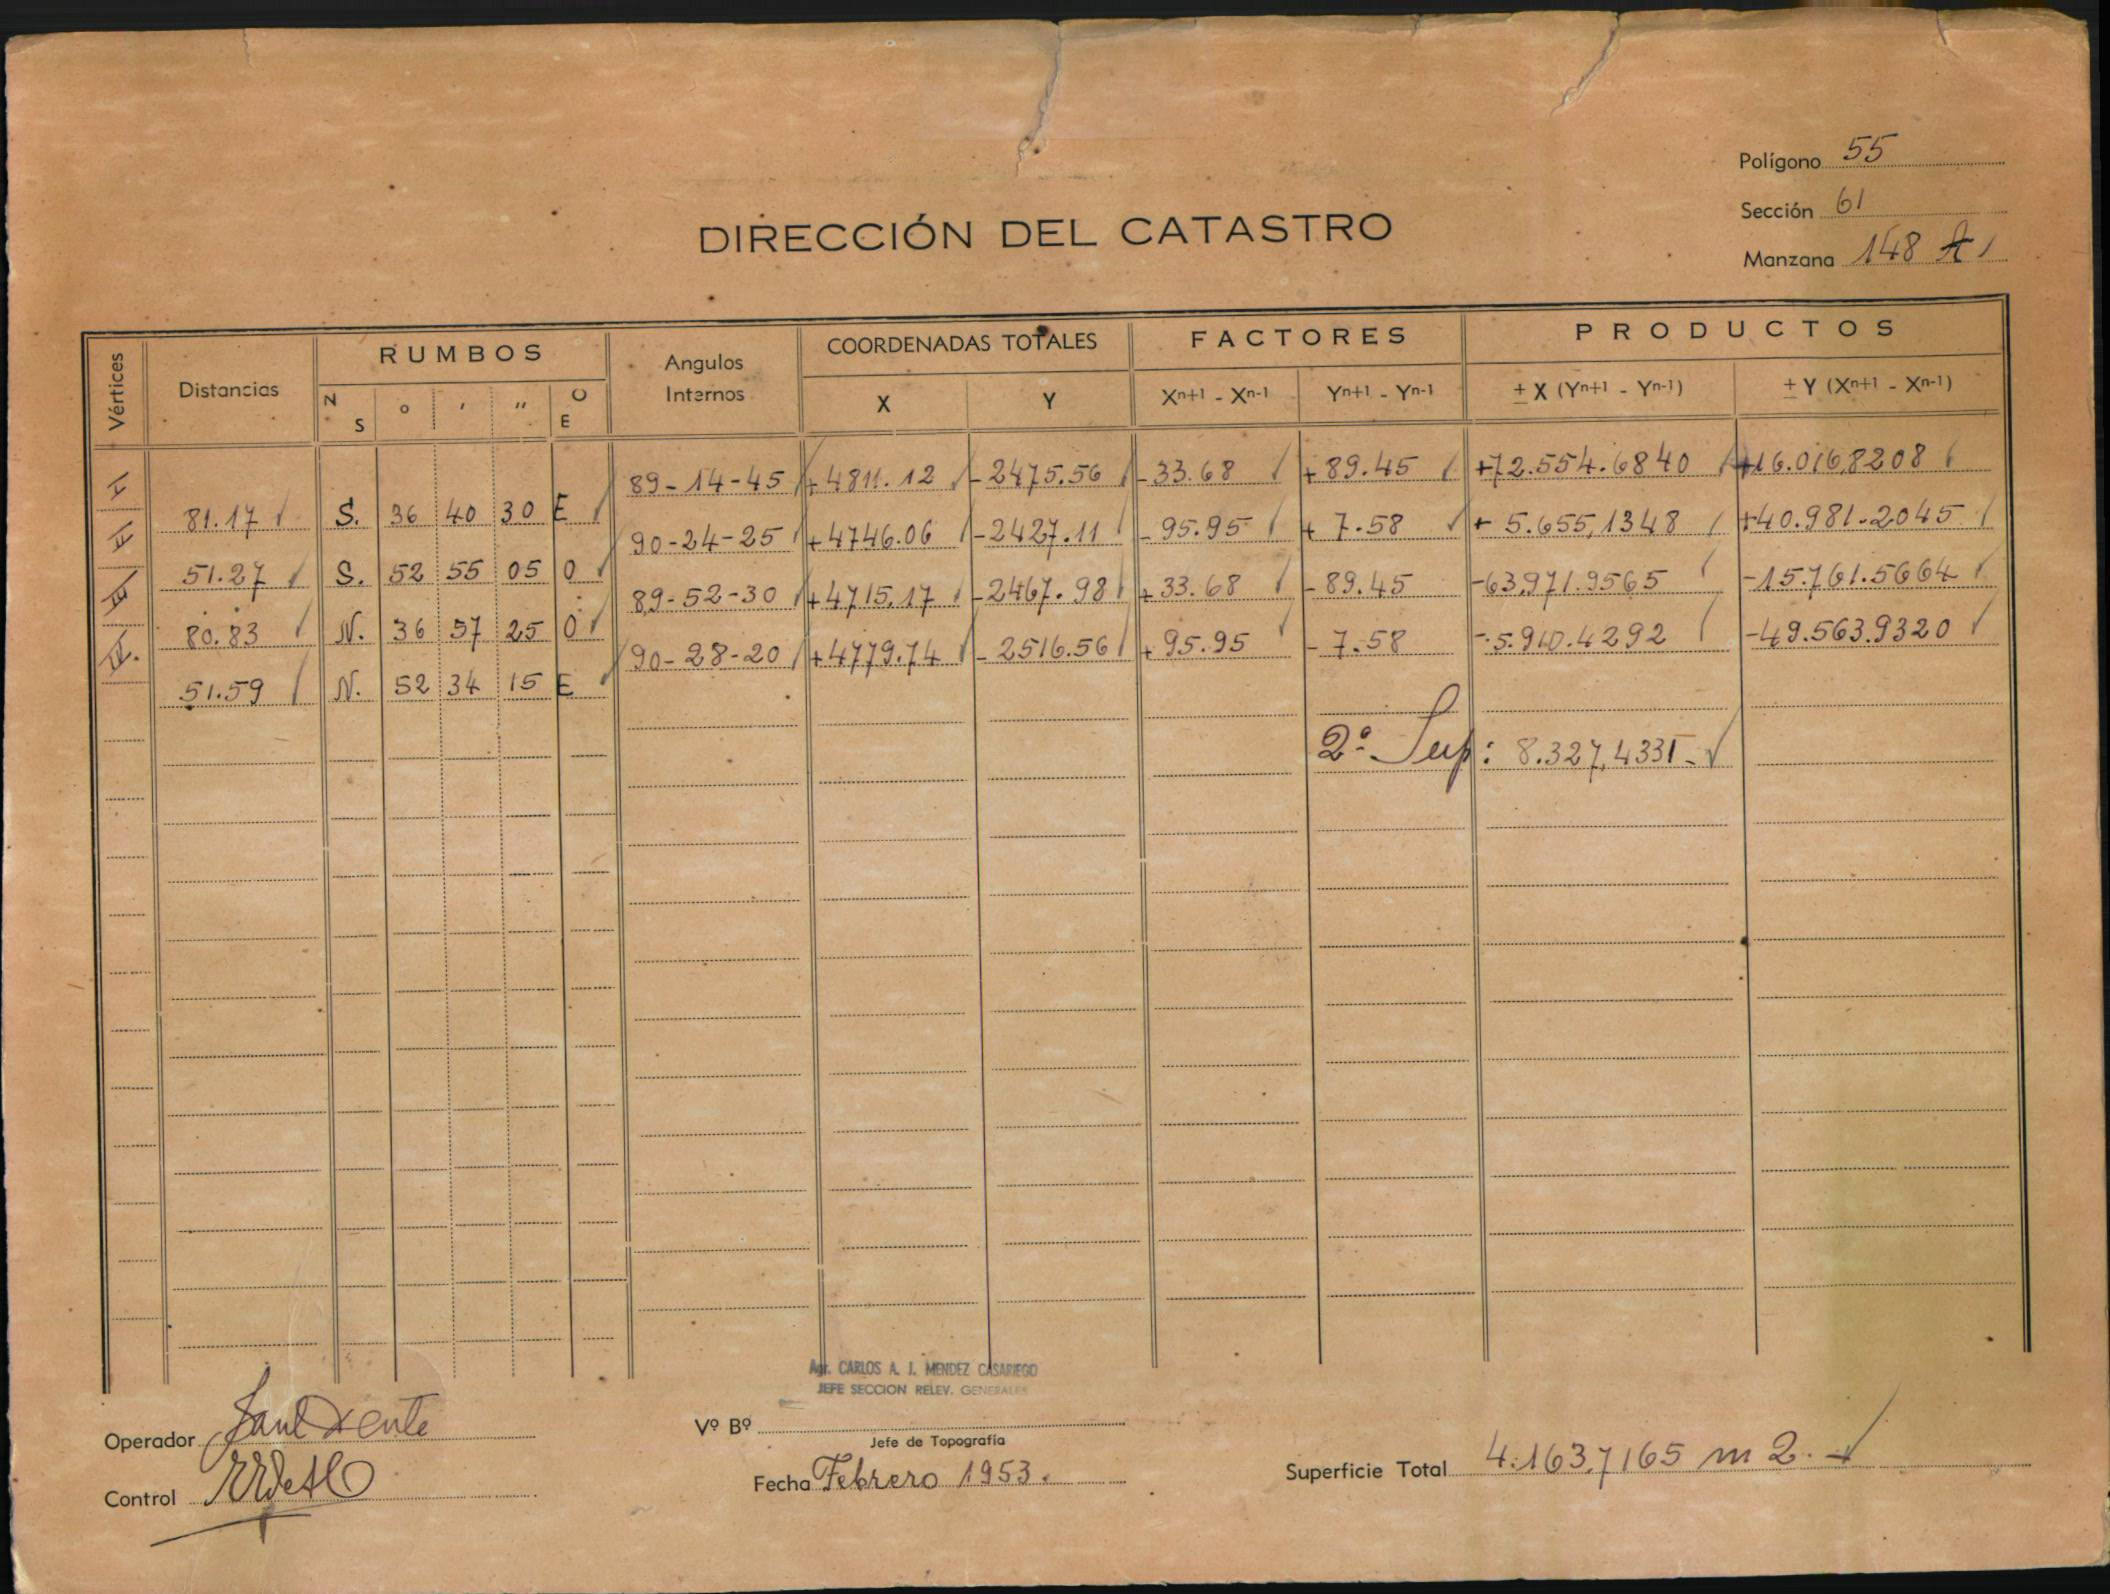 Polígono 55
Sección 61
Manzana 148 A
DIRECCIÓN DEL CATASTRO
Vértices Distancias RUMBOS Angulos Internos COORDENADAS TOTALES FACTORES PRODUCTOS
N S ° ' " O E X Y Xn+1 - Xn-1 Yn+1 - Yn-1 ± X (Yn+1 - Yn-1) ± Y (Xn+1 - Xn-1)
I 89-14-45 +4811.12 -2475.56 -33.68 +89.45 +72.554.6840 +16.016,8208
81.17 S. 36 40 30 E
II 90-24-25 +4746.06 -2427.11 -95.95 + 7.58 + 5.655,1348 +40.981.2045
51.27 S. 52 55 05 O
III 89-52-30 +4715.17 -2467.98 +33.68 -89.45 -63,971.9565 -15.761.5664
80.83 N. 36 57 25 O
IV. 90-28-20 +4779.74 -2516.56 +95.95 -7.58 -5.910.4292 -49.563.9320
51.59 N. 52 34 15 E
2ª Sup: 8.327,4331
Agr. CARLOS A. J. MENDEZ CASARIEGO
JEFE SECCION RELEV. GENERALES
Operador
Vº Bº
Jefe de Topografía
Control
Fecha Febrero 1953.
Superficie Total 4.163,7165 m2.